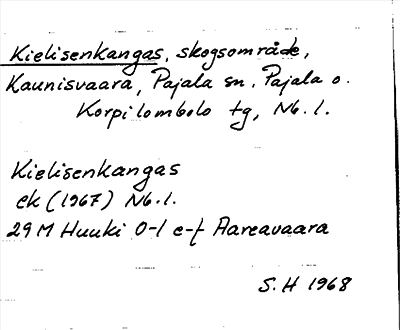 Kielisenkangas, skogsområde,
Kaunisvaara, Pajala sn. Pajala o.
Korpilombolo tg, Nb. l.
Kielisenkangas
ek (1967) Nb. l.
29 M Huuki 0-1 e-f Aareavaara
S. H 1968